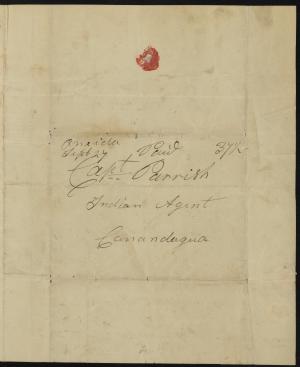 Oneida
Sept 27 Paid 37½
Capt Parrish
Indian Agent
Canandagua